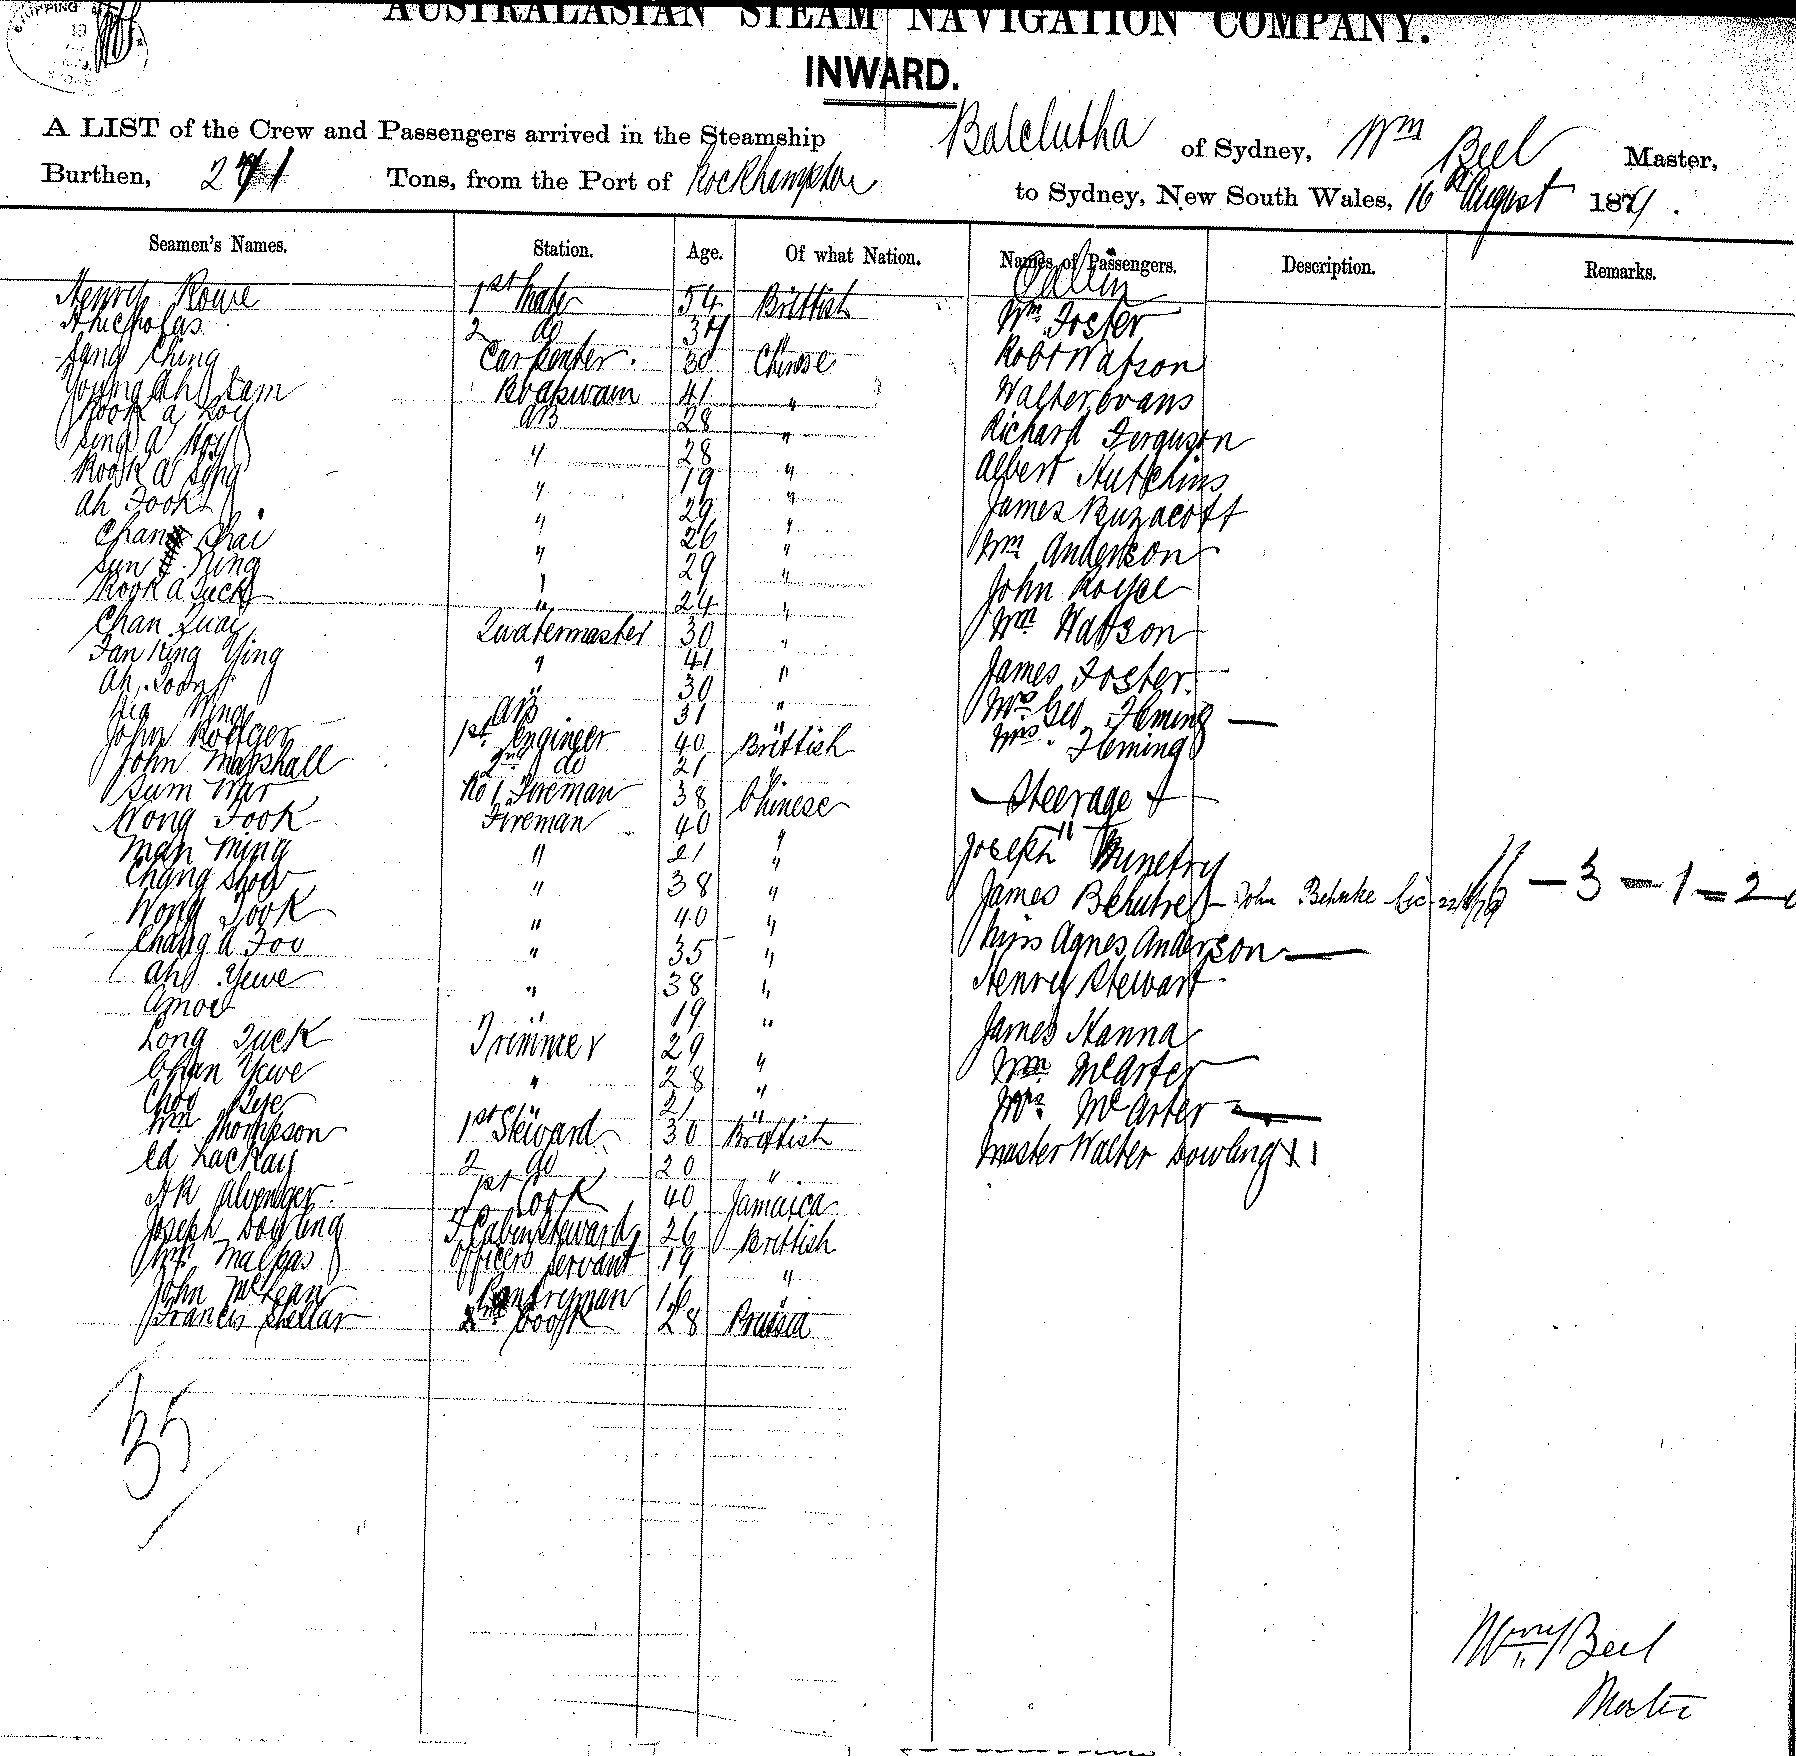 AUSTRALASIAN STEAM NAVIGATION COMPANY.
INWARD.
A LIST of the Crew and Passengers arrived in the Steamship Balclutha of Sydney, Wm Beel Master,
Burthen, Tons, from the Port of Rockhampton to Sydney, New South Wales, 16th August 187
Seamen's Names. Station. Age. Of what Nation. Names of Passengers. Description. Remarks.
Cabin
Henry Rowe 1st Mate 54 Brittish Wm Foster
A Nicholas 2 do 34 "
Fang Ching Carpenter. 30 Chinese Robt Watson
Young Ah Sam Boatswain 41 " Walter Evans
Kook a Koy AB 28 " Richard Ferguson
Sing a Hoy " 28 " Albert Hutchins
Kook a Sing " 19 "
Ah Fook " 29 " James Buzacott
Chang Chai " 26 " Wm Anderson
Sun Ning " 29 "
Kook a Tuck " 24 " John Royce
Chan Quai Quatermaster 30 " Wm Watson
Fan King Ying " 41 " James Foster
Ah Toon " 30 "
Ning AB 31 " Mr Geo Fleming
John Rodger 1st Engineer 40 Brittish Mrs. Fleming
John Marshall 2nd do 21 "
Sum War No 1 Fireman 38 Chinese Steerage
Wong Fook Fireman 40 "
Man Ming " 21 " Joseph
Chang Show " 38 " James Behnke John Behnke 11 - 3 - 1 = 20
Wong Fook " 40 "
Chang a Foo " 35 " Miss Agnes Anderson
Ah Yewe " 38 " Henry Stewart
Amoe " 19 "
Long Tuck Trimmer 29 " James Hanna
Chan Yewe " 28 " Wm McArter
Choo Kye " 21 " Mrs McArter
Wm Thompson 1st Steward 30 Brittish Master Walter Dowling
Ed Lackay 2 do 20 "
A R Alvenger 1st Cook 40 Jamaica
Joseph Dowling F Cabin Steward 26 Brittish
Malpas Officers Servant 19
John McLean Pantryman 16 "
Francis Shellar 2nd Cook 28 Prussia
35
Wm Beel
Master